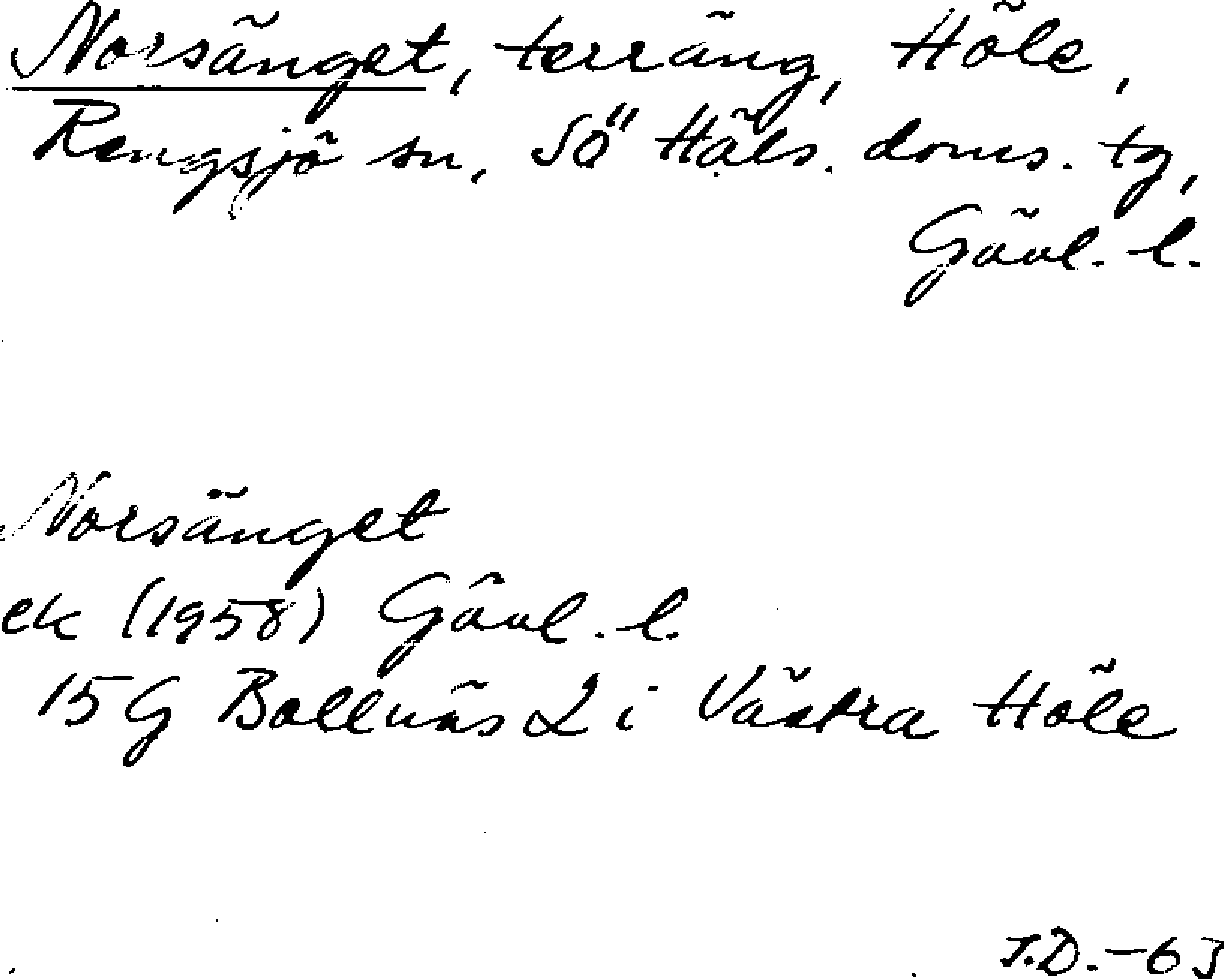 Norsänget, terräng, Höle,
Rengsjö sn, Sö Häls. doms. tg,
Gävl. l.
Norsänget
ek (1958) Gävl. l.
15 G Bollnäs 2 i Västra Höle
T.D.-63